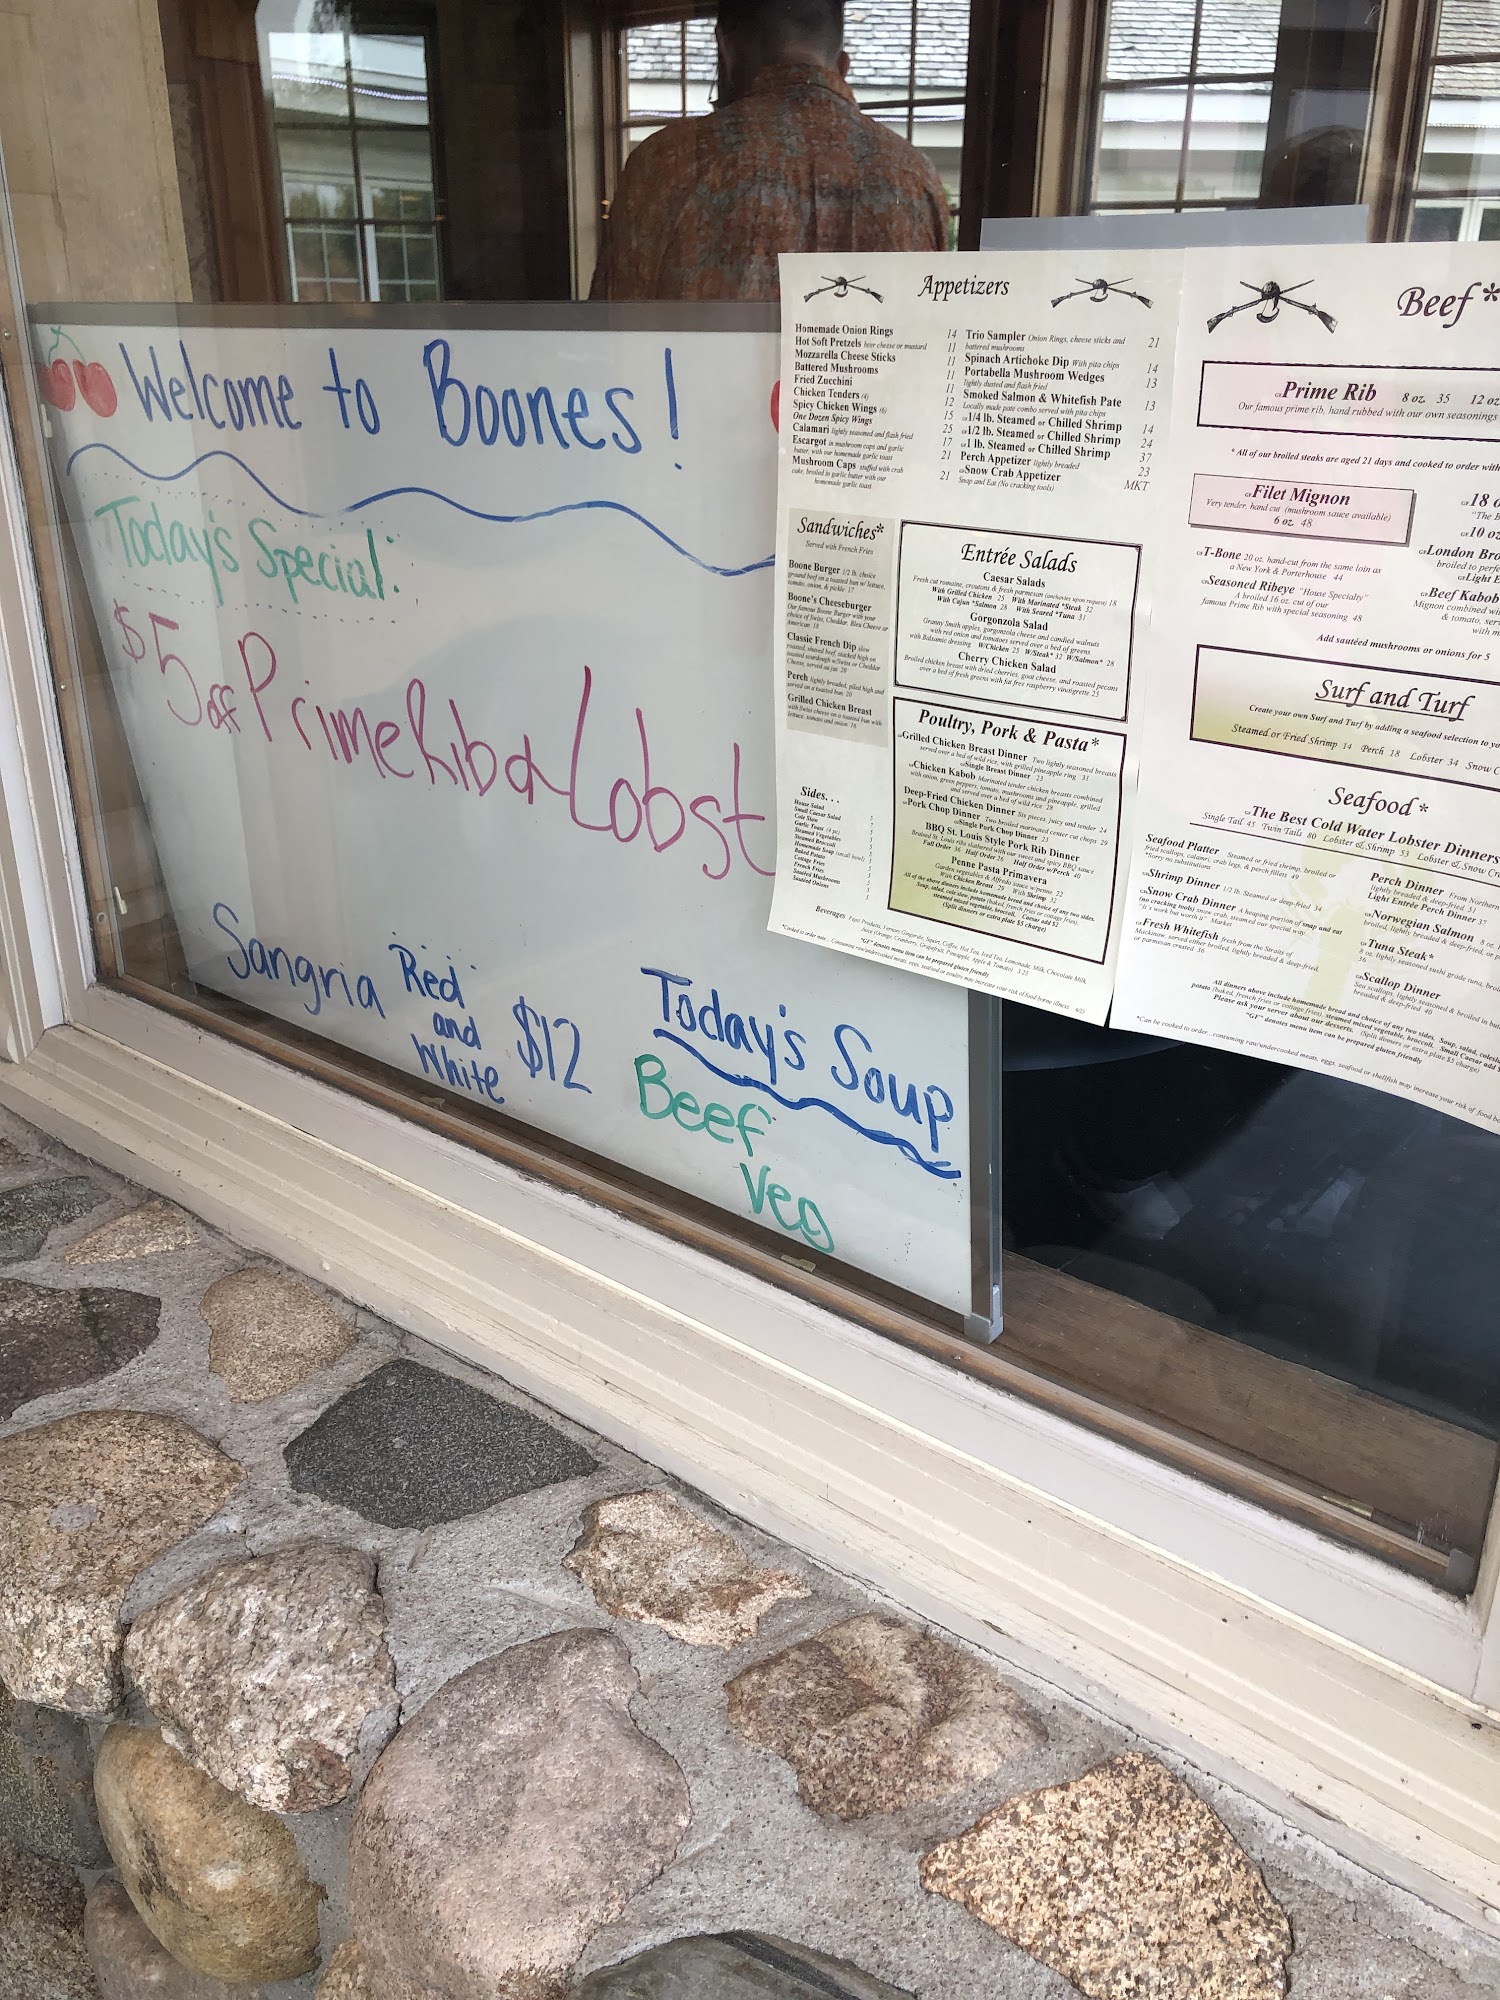 Welcome to Boones!
Today's Special:
$5 off Prime Rib or Lobst
Sangria Red and White $12
Today's Soup
Beef
Veg
Appetizers
Homemade Onion Rings 14
Hot Soft Pretzels beer cheese or mustard 11
Mozzarella Cheese Sticks 11
Battered Mushrooms 11
Fried Zucchini 11
Chicken Tenders (4) 12
Spicy Chicken Wings (6) 15
One Dozen Spicy Wings 25
Calamari lightly seasoned and flash fried 17
Escargot in mushroom caps and garlic
butter, with our homemade garlic toast 21
Mushroom Caps stuffed with crab
cake, broiled in garlic butter with our
homemade garlic toast 21
Trio Sampler Onion Rings, cheese sticks and
battered mushrooms 21
Spinach Artichoke Dip With pita chips 14
Portabella Mushroom Wedges 13
lightly dusted and flash fried
Smoked Salmon & Whitefish Pate 13
Locally made pate combo served with pita chips
GF 1/4 lb. Steamed or Chilled Shrimp 14
GF 1/2 lb. Steamed or Chilled Shrimp 24
GF 1 lb. Steamed or Chilled Shrimp 37
Perch Appetizer lightly breaded 23
GF Snow Crab Appetizer MKT
Snap and Eat (No cracking tools)
Sandwiches*
Served with French Fries
Boone Burger 1/2 lb. choice
ground beef on a toasted bun w/ lettuce,
tomato, onion, & pickle 17
Boone's Cheeseburger
Our famous Boone Burger with your
choice of Swiss, Cheddar, Bleu Cheese or
American 18
Classic French Dip slow
roasted, shaved beef, stacked high on
toasted sourdough w/Swiss or Cheddar
Cheese, served au jus 20
Perch lightly breaded, piled high and
served on a toasted bun 20
Grilled Chicken Breast
with Swiss cheese on a toasted bun with
lettuce, tomato and onion 16
Sides. . .
House Salad
Small Caesar Salad
Cole Slaw
Garlic Toast (4 pc)
Steamed Vegetables
Steamed Broccoli
Homemade Soup (small bowl)
Baked Potato
Cottage Fries
French Fries
Sautéed Mushrooms
Sautéed Onions
Entrée Salads
Caesar Salads
Fresh cut romaine, croutons & fresh parmesan (anchovies upon request) 18
With Grilled Chicken 25 With Marinated *Steak 32
With Cajun *Salmon 28 With Seared *Tuna 31
Gorgonzola Salad
Granny Smith apples, gorgonzola cheese and candied walnuts
with red onion and tomatoes served over a bed of greens
with Balsamic dressing W/Chicken 25 W/Steak* 32 W/Salmon* 28
Cherry Chicken Salad
Broiled chicken breast with dried cherries, goat cheese, and roasted pecans
over a bed of fresh greens with fat free raspberry vinaigrette 25
Poultry, Pork & Pasta*
GF Grilled Chicken Breast Dinner Two lightly seasoned breasts
served over a bed of wild rice, with grilled pineapple ring 31
GF Single Breast Dinner 23
GF Chicken Kabob Marinated tender chicken breasts combined
with onion, green peppers, tomato, mushrooms and pineapple, grilled
and served over a bed of wild rice 28
Deep-Fried Chicken Dinner Six pieces, juicy and tender 24
GF Pork Chop Dinner Two broiled marinated center cut chops 29
GF Single Pork Chop Dinner 23
BBQ St. Louis Style Pork Rib Dinner
Braised St. Louis ribs slathered with our sweet and spicy BBQ sauce
Full Order 36 Half Order 26 Half Order w/Perch 40
Penne Pasta Primavera
Garden vegetables & Alfredo sauce w/penne 22
With Chicken Breast 29 With Shrimp 32
All of the above dinners include homemade bread and choice of any two sides.
Soup, salad, cole slaw, potato (baked, french fries or cottage fries),
steamed mixed vegetable, broccoli. Caesar add $2
(Split dinners or extra plate $5 charge)
Beverages Pepsi Products, Vernors Gingerale, Squirt, Coffee, Hot Tea, Iced Tea, Lemonade, Milk, Chocolate Milk,
Juice (Orange, Cranberry, Grapefruit, Pineapple, Apple & Tomato) 3.25
"GF" denotes menu item can be prepared gluten friendly
*Cooked to order note... Consuming raw/undercooked meats, eggs, seafood or shellfish may increase your risk of food borne illness.
Beef*
GF Prime Rib 8 oz. 35 12 oz
Our famous prime rib, hand rubbed with our own seasonings
* All of our broiled steaks are aged 21 days and cooked to order with
GF Filet Mignon
Very tender, hand cut (mushroom sauce available)
6 oz. 48
GF T-Bone 20 oz. hand-cut from the same loin as
a New York & Porterhouse 44
GF Seasoned Ribeye "House Specialty"
A broiled 16 oz. cut of our
famous Prime Rib with special seasoning 48
GF 18 o
"The B
GF 10 oz
GF London Bro
broiled to perfe
GF Light E
GF Beef Kabob
Mignon combined wi
& tomato, ser
with m
Add sautéed mushrooms or onions for 5
Surf and Turf
Create your own Surf and Turf by adding a seafood selection to yo
Steamed or Fried Shrimp 14 Perch 18 Lobster 34 Snow C
Seafood*
GF The Best Cold Water Lobster Dinners
Single Tail 45 Twin Tails 80 Lobster & Shrimp 53 Lobster & Snow Cra
Seafood Platter Steamed or fried shrimp, broiled or
fried scallops, calamari, crab legs, & perch fillets 49
*Sorry no substitutions
GF Shrimp Dinner 1/2 lb. Steamed or deep-fried 34
GF Snow Crab Dinner A heaping portion of snap and eat
(no cracking tools) snow crab, steamed our special way.
"It's work but worth it" Market
GF Fresh Whitefish fresh from the Straits of
Mackinaw, served either broiled, lightly breaded & deep-fried,
or parmesan crusted 36
Perch Dinner From Northern
lightly breaded & deep-fried 51
Light Entrée Perch Dinner 37
GF Norwegian Salmon 8 oz.
broiled, lightly breaded & deep-fried, or p
36
GF Tuna Steak*
8 oz. lightly seasoned sushi grade tuna, broi
GF Scallop Dinner
Sea scallops, lightly seasoned & broiled in but
breaded & deep-fried 40
All dinners above include homemade bread and choice of any two sides. Soup, salad, colesla
potato (baked, french fries or cottage fries), steamed mixed vegetable, broccoli. Small Caesar add $
Please ask your server about our desserts. (Split dinners or extra plate $5 charge)
"GF" denotes menu item can be prepared gluten friendly
*Can be cooked to order...consuming raw/undercooked meats, eggs, seafood or shellfish may increase your risk of food bo